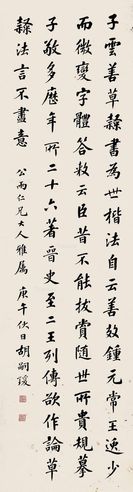 子雲善草隸書為世楷法自云善效鍾元常王逸少
而微變字體答敕云臣昔不能拔賞隨世所貴規摹
子敬多歷年所二十六著晉史至二王列傳欲作論草
隸法言不盡意
公雨仁兄大人雅屬 庚午秋日胡嗣瑗